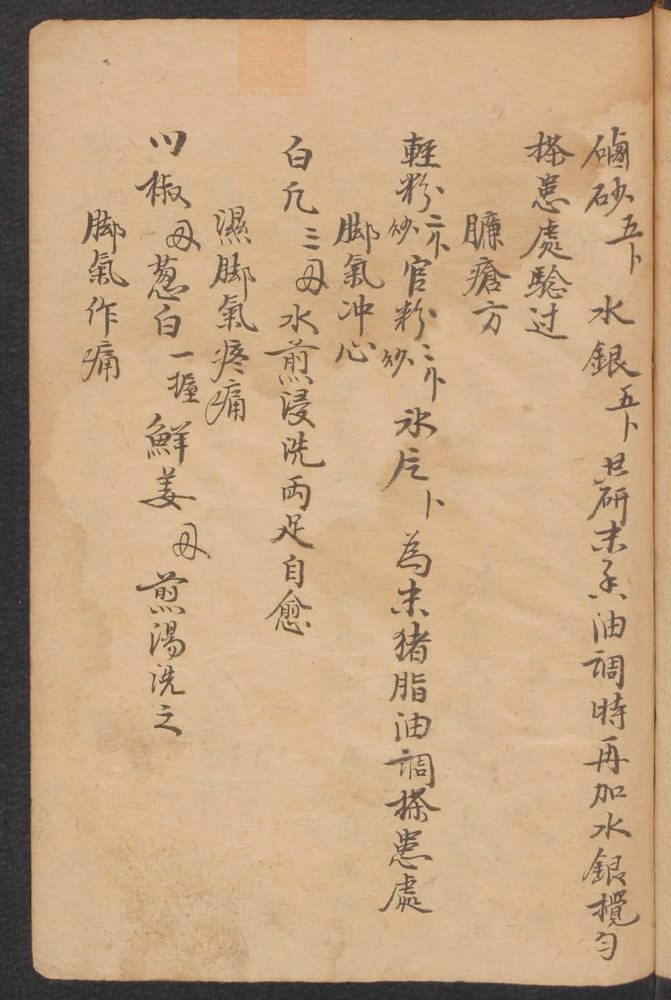 硇砂五卜 水銀五卜 共研末香油調時再加水銀攪勻
搽患處驗过
臁瘡方
輕粉二卜炒官粉二卜炒 氷片卜 為末猪脂油調搽患處
脚氣冲心
白凢三母水煎浸洗両足自愈
濕脚氣疼痛
川椒母葱白一握鮮姜母煎湯洗之
脚氣作痛